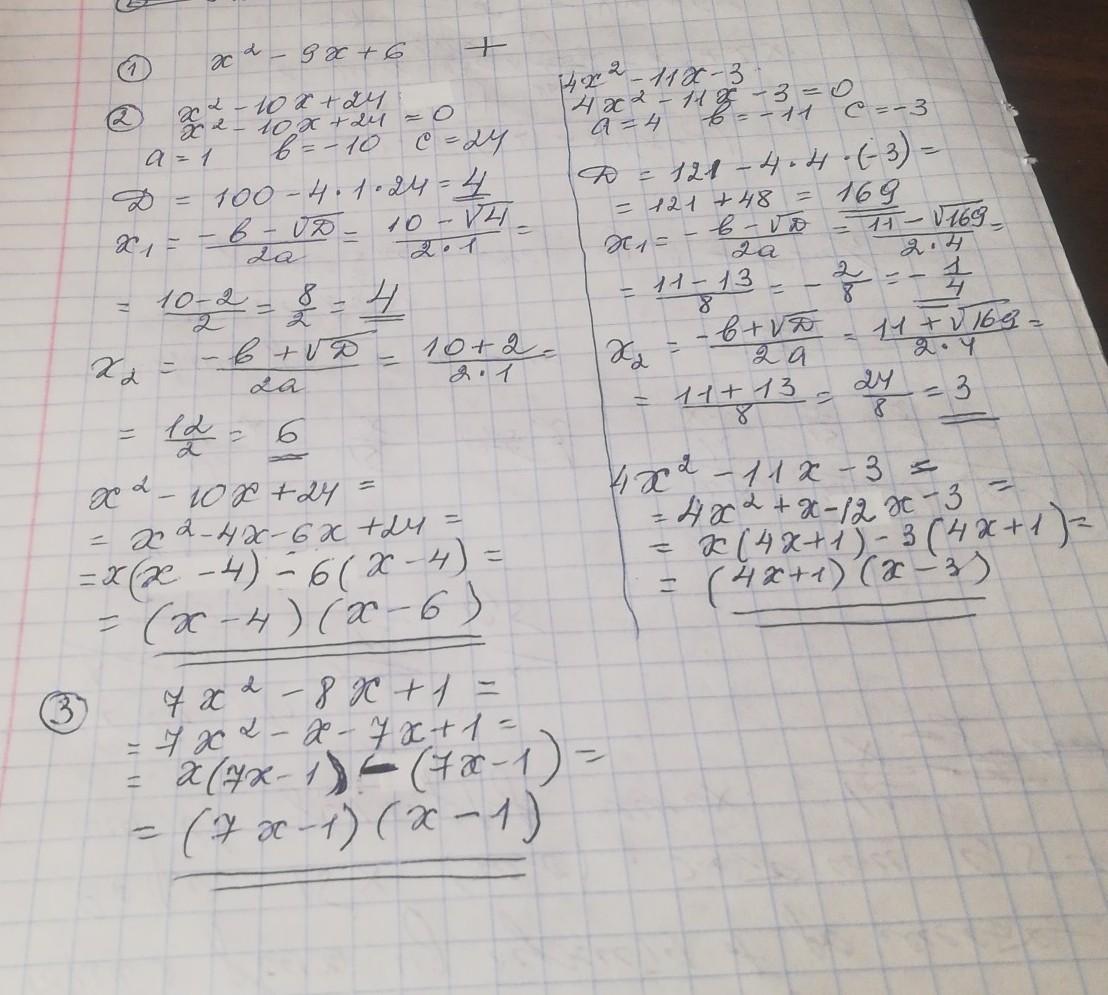 ① x² - 9x + 6 +
② x² - 10x + 24
x² - 10x + 24 = 0
a = 1 в = -10 c = 24
D = 100 - 4 · 1 · 24 = 4
x₁ = (-в - √D)/(2a) = (10 - √4)/(2 · 1) =
= (10-2)/2 = 8/2 = 4
x₂ = (-в + √D)/(2a) = (10 + 2)/(2 · 1) =
= 12/2 = 6
x² - 10x + 24 =
= x² - 4x - 6x + 24 =
= x(x - 4) - 6(x - 4) =
= (x - 4)(x - 6)
4x² - 11x - 3
4x² - 11x - 3 = 0
a = 4 в = -11 c = -3
D = 121 - 4 · 4 · (-3) =
= 121 + 48 = 169
x₁ = -(в - √D)/(2a) = (11 - √169)/(2 · 4) =
= (11 - 13)/8 = -2/8 = -1/4
x₂ = (-в + √D)/(2a) = (11 + √169)/(2 · 4) =
= (11 + 13)/8 = 24/8 = 3
4x² - 11x - 3 =
= 4x² + x - 12x - 3 =
= x(4x+1) - 3(4x+1) =
= (4x+1)(x - 3)
③ 7x² - 8x + 1 =
= 7x² - x - 7x + 1 =
= x(7x - 1) - (7x - 1) =
= (7x - 1)(x - 1)